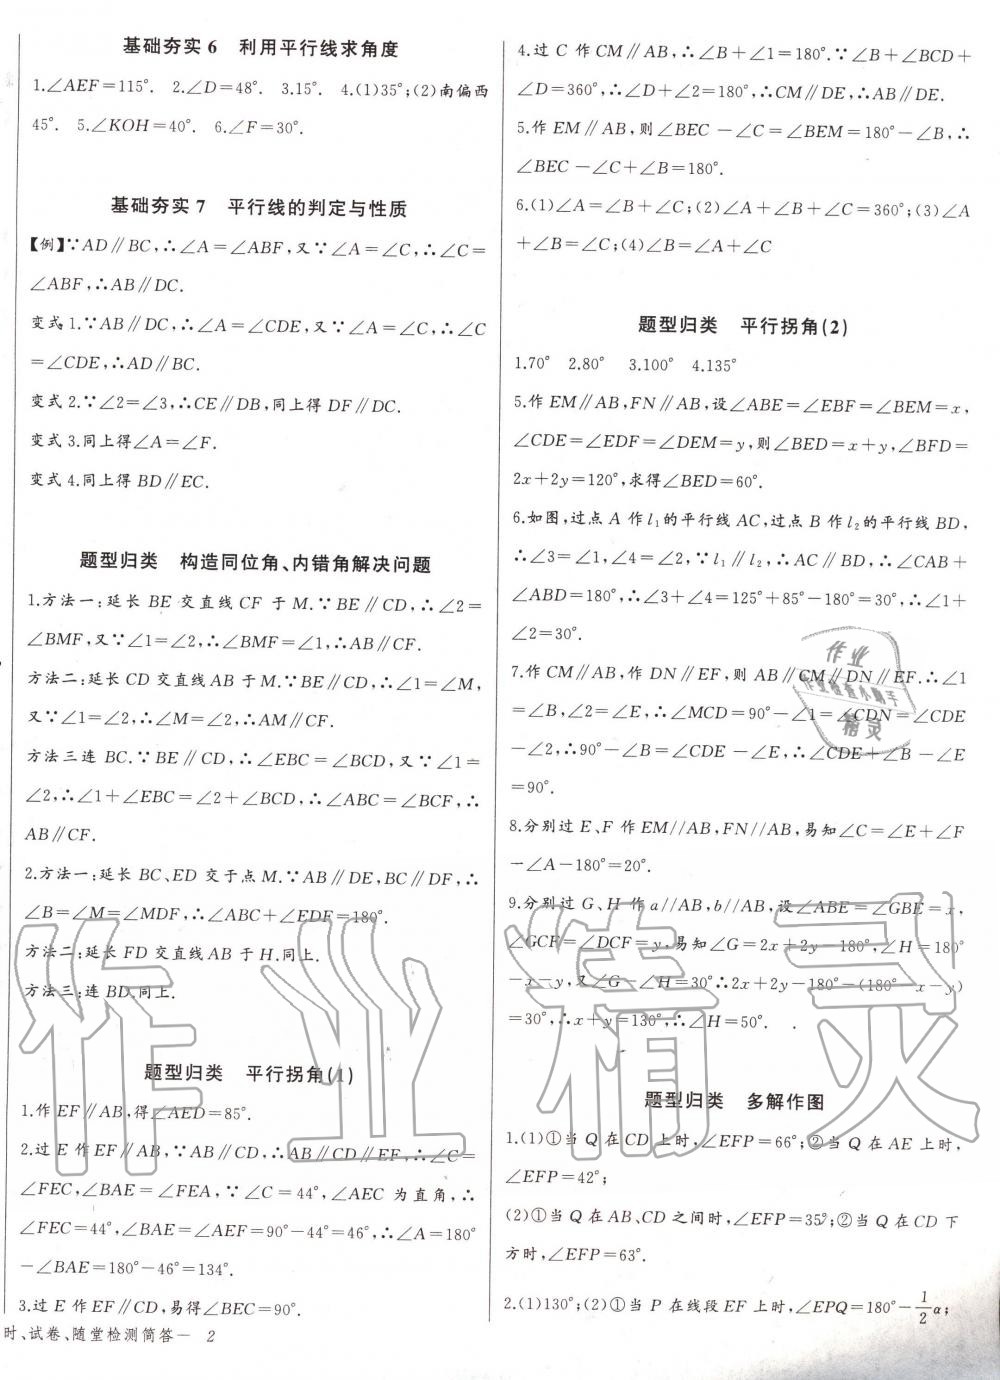 基础夯实6 利用平行线求角度
1.∠AEF=115°. 2.∠D=48°. 3.15°. 4.(1)35°;(2)南偏西
45°. 5.∠KOH=40°. 6.∠F=30°.
基础夯实7 平行线的判定与性质
【例】∵AD∥BC,∴∠A=∠ABF,又∵∠A=∠C,∴∠C=
∠ABF,∴AB∥DC.
变式1.∵AB∥DC,∴∠A=∠CDE,又∵∠A=∠C,∴∠C
=∠CDE,∴AD∥BC.
变式2.∵∠2=∠3,∴CE∥DB,同上得DF∥DC.
变式3.同上得∠A=∠F.
变式4.同上得BD∥EC.
题型归类 构造同位角、内错角解决问题
1.方法一:延长BE交直线CF于M.∵BE∥CD,∴∠2=
∠BMF,又∵∠1=∠2,∴∠BMF=∠1,∴AB∥CF.
方法二:延长CD交直线AB于M.∵BE∥CD,∴∠1=∠M,
又∵∠1=∠2,∴∠M=∠2,∴AM∥CF.
方法三连BC.∵BE∥CD,∴∠EBC=∠BCD,又∵∠1=
∠2,∴∠1+∠EBC=∠2+∠BCD,∴∠ABC=∠BCF,∴
AB∥CF.
2.方法一:延长BC、ED交于点M.∵AB∥DE,BC∥DF,∴
∠B=∠M=∠MDF,∴∠ABC+∠EDF=180°.
方法二:延长FD交直线AB于H.同上.
方法三:连BD.同上.
题型归类 平行拐角(1)
1.作EF∥AB,得∠AED=85°.
2.过E作EF∥AB,∵AB∥CD,∴AB∥CD∥EF,∴∠C=
∠FEC,∠BAE=∠FEA,∵∠C=44°,∠AEC为直角,∴
∠FEC=44°,∠BAE=∠AEF=90°-44°=46°,∴∠A=180°
-∠BAE=180°-46°=134°.
3.过E作EF∥CD,易得∠BEC=90°.
时、试卷、随堂检测简答— 2
4.过C作CM∥AB,∴∠B+∠1=180°.∵∠B+∠BCD+
∠D=360°,∴∠D+∠2=180°,∴CM∥DE,∴AB∥DE.
5.作EM∥AB,则∠BEC-∠C=∠BEM=180°-∠B,∴
∠BEC-∠C+∠B=180°.
6.(1)∠A=∠B+∠C;(2)∠A+∠B+∠C=360°;(3)∠A
+∠B=∠C;(4)∠B=∠A+∠C
题型归类 平行拐角(2)
1.70° 2.80° 3.100° 4.135°
5.作EM∥AB,FN∥AB,设∠ABE=∠EBF=∠BEM=x,
∠CDE=∠EDF=∠DEM=y,则∠BED=x+y,∠BFD=
2x+2y=120°,求得∠BED=60°.
6.如图,过点A作l₁的平行线AC,过点B作l₂的平行线BD,
∴∠3=∠1,∠4=∠2,∵l₁∥l₂,∴AC∥BD,∴∠CAB+
∠ABD=180°,∴∠3+∠4=125°+85°-180°=30°,∴∠1+
∠2=30°.
7.作CM∥AB,作DN∥EF,则AB∥CM∥DN∥EF.∴∠1
=∠B,∠2=∠E,∴∠MCD=90°-∠1=∠CDN=∠CDE
-∠2,∴90°-∠B=∠CDE-∠E,∴∠CDE+∠B-∠E
=90°.
8.分别过E、F作EM//AB,FN//AB,易知∠C=∠E+∠F
-∠A-180°=20°.
9.分别过G、H作a//AB,b//AB,设∠ABE=∠GBE=x,
∠GCF=∠DCF=y.易知∠G=2x+2y-180°,∠H=180°
-x-y,又∠G-∠H=30°∴2x+2y-180°-(180°-x-y)
=30°,∴x+y=130°,∴∠H=50°.
题型归类 多解作图
1.(1)①当Q在CD上时,∠EFP=66°;②当Q在AE上时,
∠EFP=42°;
(2)①当Q在AB、CD之间时,∠EFP=35°;②当Q在CD下
方时,∠EFP=63°.
2.(1)130°;(2)①当P在线段EF上时,∠EPQ=180°-1/2α;
作业
作业检查小助手
精灵
作业精灵